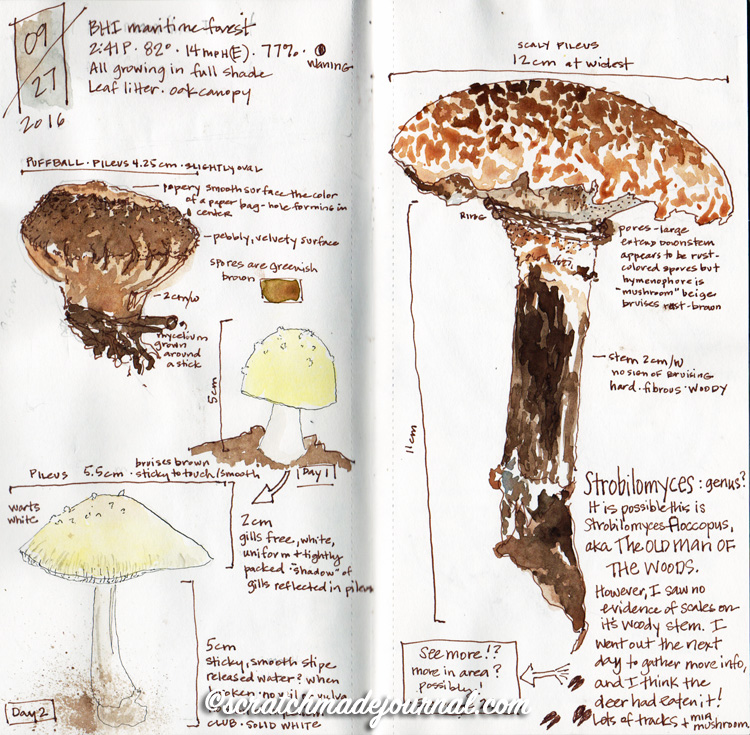 09
27
2016
BHI maritime forest
2:41P · 82° · 14mpH(E) · 77% ·
waning
All growing in full shade
Leaf litter · oak canopy
PUFFBALL · PILEUS 4.25cm · SLIGHTLY OVAL
papery smooth surface the color
of a paper bag - hole forming in
center
pebbly, velvety surface
spores are greenish
brown
~2cm/w
mycelium
grown
around
a stick
5cm
Day 1
bruises brown
PILEUS 5.5cm · sticky to touch/smooth
warts
white
2cm
gills free, white,
uniform + tightly
packed "shadow" of
gills reflected in pileus
5cm
sticky, smooth stipe
released water? when
broken · no vulva
CLUB · SOLID WHITE
Day 2
SCALY PILEUS
12cm at widest
RING
pores - large
extend downstem
appears to be rust-
colored spores but
hymenophore is
"mushroom" beige
bruises rust-brown
11cm
stem 2cm/w
no sign of bruising
hard · fibrous · WOODY
Strobilomyces: genus?
It is possible this is
Strobilomyces floccopus,
aka THE OLD MAN OF
THE WOODS.
However, I saw no
evidence of scales on
it's woody stem. I
went out the next
day to gather more info,
and I think the
deer had eaten it!
Lots of tracks + MIA
mushroom.
See more!?
more in area?
possibly!
@scratchmadejournal.com